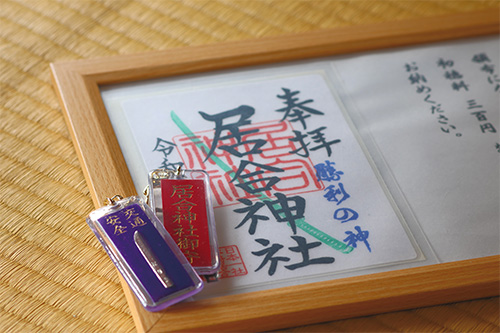 額な
初穂料 三百円
お納めください。
奉拝
勝利の神
居合神社
令和
居合神社御守
交通
安全